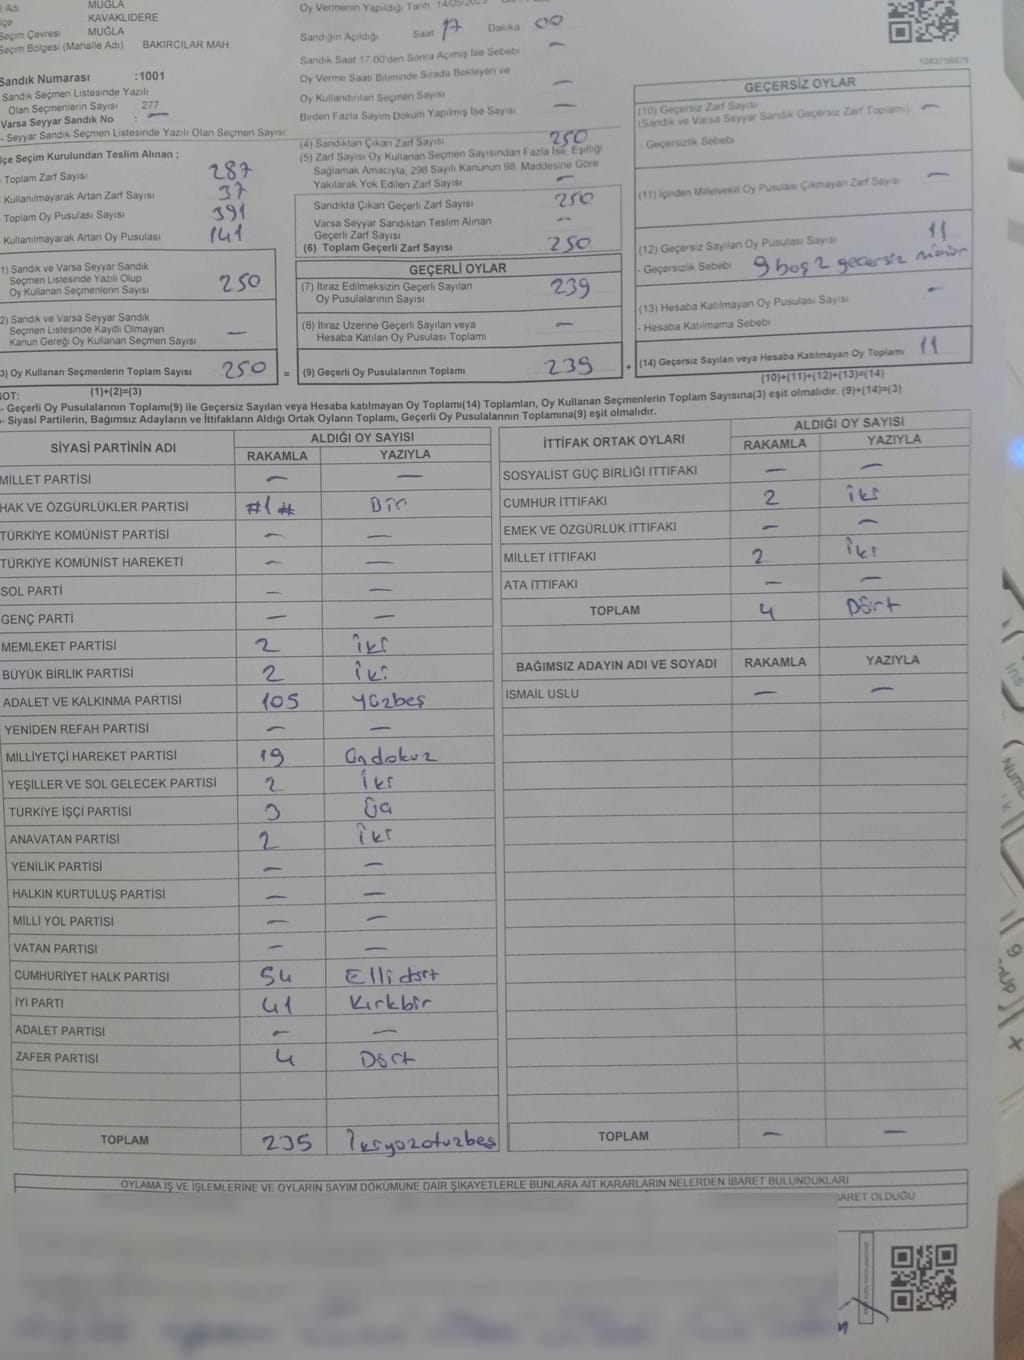 Adı MUĞLA
KAVAKLIDERE
Seçim Çevresi MUĞLA
Seçim Bölgesi (Mahalle Adı) BAKIRCILAR MAH
Sandık Numarası :1001
Sandık Seçmen Listesinde Yazılı
Olan Seçmenlerin Sayısı 277
Varsa Seyyar Sandık No : —
- Seyyar Sandık Seçmen Listesinde Yazılı Olan Seçmen Sayısı
İlçe Seçim Kurulundan Teslim Alınan ;
Toplam Zarf Sayısı 287
Kullanılmayarak Artan Zarf Sayısı 37
Toplam Oy Pusulası Sayısı 391
Kullanılmayarak Artan Oy Pusulası 141
1) Sandık ve Varsa Seyyar Sandık
Seçmen Listesinde Yazılı Olup
Oy Kullanan Seçmenlerin Sayısı 250
2) Sandık ve Varsa Seyyar Sandık
Seçmen Listesinde Kayıtlı Olmayan
Kanun Gereği Oy Kullanan Seçmen Sayısı —
3) Oy Kullanan Seçmenlerin Toplam Sayısı 250
(1)+(2)=(3)
Oy Vermenin Yapıldığı Tarih 14/05/2023
Sandığın Açıldığı Saat 17 Dakika 00
Sandık Saat 17.00'den Sonra Açımış İse Sebebi —
Oy Verme Saati Bitiminde Sırada Bekleyen ve
Oy Kullandırılan Seçmen Sayısı —
Birden Fazla Sayım Döküm Yapılmış İse Sayısı —
(4) Sandıktan Çıkan Zarf Sayısı 250
(5) Zarf Sayısı Oy Kullanan Seçmen Sayısından Fazla İse, Eşitliği
Sağlamak Amacıyla, 298 Sayılı Kanunun 98. Maddesine Göre
Yakılarak Yok Edilen Zarf Sayısı —
Sandıkta Çıkan Geçerli Zarf Sayısı 250
Varsa Seyyar Sandıktan Teslim Alınan
Geçerli Zarf Sayısı —
(6) Toplam Geçerli Zarf Sayısı 250
GEÇERLİ OYLAR
(7) İtiraz Edilmeksizin Geçerli Sayılan
Oy Pusulalarının Sayısı 239
(8) İtiraz Üzerine Geçerli Sayılan veya
Hesaba Katılan Oy Pusulası Toplamı —
= (9) Geçerli Oy Pusulalarının Toplamı 239 +
1083758875
GEÇERSİZ OYLAR
(10) Geçersiz Zarf Sayısı
(Sandık ve Varsa Seyyar Sandık Geçersiz Zarf Toplamı) —
- Geçersizlik Sebebi
(11) İçinden Milletvekili Oy Pusulası Çıkmayan Zarf Sayısı —
(12) Geçersiz Sayılan Oy Pusulası Sayısı 11
- Geçersizlik Sebebi 9 boş 2 geçersiz mühür
(13) Hesaba Katılmayan Oy Pusulası Sayısı —
- Hesaba Katılmama Sebebi
(14) Geçersiz Sayılan veya Hesaba Katılmayan Oy Toplamı 11
(10)+(11)+(12)+(13)=(14)
NOT:
- Geçerli Oy Pusulalarının Toplamı(9) ile Geçersiz Sayılan veya Hesaba katılmayan Oy Toplamı(14) Toplamları, Oy Kullanan Seçmenlerin Toplam Sayısına(3) eşit olmalıdır. (9)+(14)=(3)
- Siyasi Partilerin, Bağımsız Adayların ve İttifakların Aldığı Ortak Oyların Toplamı, Geçerli Oy Pusulalarının Toplamına(9) eşit olmalıdır.
SİYASİ PARTİNİN ADI ALDIĞI OY SAYISI
RAKAMLA YAZIYLA
MİLLET PARTİSİ — —
HAK VE ÖZGÜRLÜKLER PARTİSİ #1# Bir
TÜRKİYE KOMÜNİST PARTİSİ — —
TÜRKİYE KOMÜNİST HAREKETİ — —
SOL PARTİ — —
GENÇ PARTİ — —
MEMLEKET PARTİSİ 2 İki
BÜYÜK BİRLİK PARTİSİ 2 İki
ADALET VE KALKINMA PARTİSİ 105 Yüzbeş
YENİDEN REFAH PARTİSİ — —
MİLLİYETÇİ HAREKET PARTİSİ 19 Ondokuz
YEŞİLLER VE SOL GELECEK PARTİSİ 2 İki
TÜRKİYE İŞÇİ PARTİSİ 3 Üç
ANAVATAN PARTİSİ 2 İki
YENİLİK PARTİSİ — —
HALKIN KURTULUŞ PARTİSİ — —
MİLLİ YOL PARTİSİ — —
VATAN PARTİSİ — —
CUMHURİYET HALK PARTİSİ 54 Ellidört
İYİ PARTİ 41 Kırkbir
ADALET PARTİSİ — —
ZAFER PARTİSİ 4 Dört
TOPLAM 235 İkiyüzotuzbeş
İTTİFAK ORTAK OYLARI ALDIĞI OY SAYISI
RAKAMLA YAZIYLA
SOSYALİST GÜÇ BİRLİĞİ İTTİFAKI — —
CUMHUR İTTİFAKI 2 İki
EMEK VE ÖZGÜRLÜK İTTİFAKI — —
MİLLET İTTİFAKI 2 İki
ATA İTTİFAKI — —
TOPLAM 4 Dört
BAĞIMSIZ ADAYIN ADI VE SOYADI RAKAMLA YAZIYLA
İSMAİL USLU — —
TOPLAM — —
OYLAMA İŞ VE İŞLEMLERİNE VE OYLARIN SAYIM DÖKÜMÜNE DAİR ŞİKAYETLERLE BUNLARA AİT KARARLARIN NELERDEN İBARET BULUNDUKLARI
BARET OLDUĞU
Ins
NumL
9
x